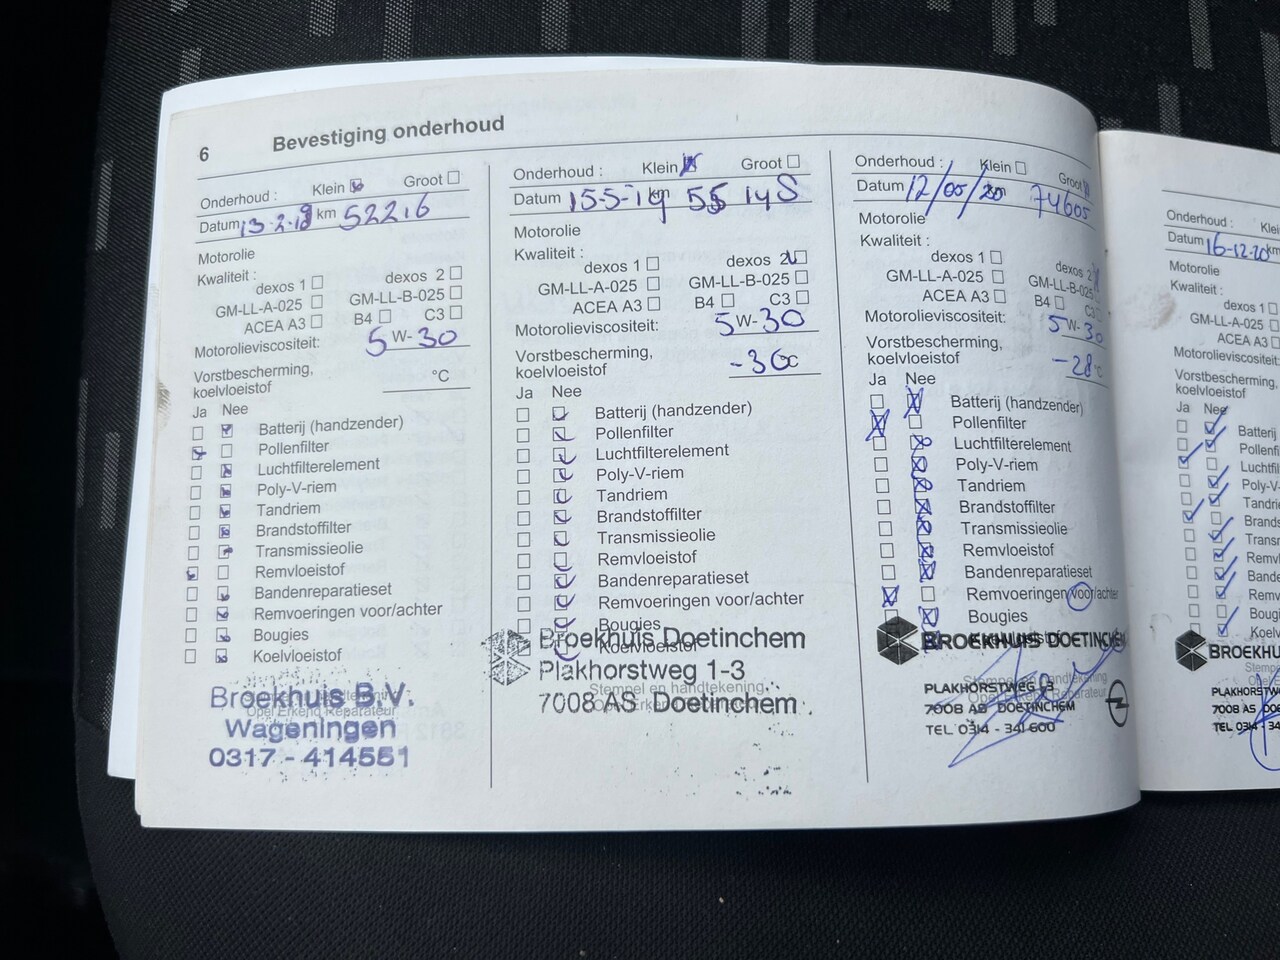 6
Bevestiging onderhoud
Onderhoud : Klein Groot
Datum 13-2-19 km 52216
Motorolie
Kwaliteit :
dexos 1 dexos 2
GM-LL-A-025 GM-LL-B-025
ACEA A3 B4 C3
Motorolieviscositeit: 5 W- 30
Vorstbescherming,
koelvloeistof °C
Ja Nee
Batterij (handzender)
Pollenfilter
Luchtfilterelement
Poly-V-riem
Tandriem
Brandstoffilter
Transmissieolie
Remvloeistof
Bandenreparatieset
Remvoeringen voor/achter
Bougies
Koelvloeistof
Opel Erkend Reparateur
Broekhuis B.V.
Wageningen
0317 - 414551
Onderhoud : Klein Groot
Datum 15-5-19 km 55 148
Motorolie
Kwaliteit :
dexos 1 dexos 2
GM-LL-A-025 GM-LL-B-025
ACEA A3 B4 C3
Motorolieviscositeit: 5 W- 30
Vorstbescherming,
koelvloeistof -30 °C
Ja Nee
Batterij (handzender)
Pollenfilter
Luchtfilterelement
Poly-V-riem
Tandriem
Brandstoffilter
Transmissieolie
Remvloeistof
Bandenreparatieset
Remvoeringen voor/achter
Bougies
Koelvloeistof
Stempel en handtekening
Opel Erkend Reparateur
Broekhuis Doetinchem
Plakhorstweg 1-3
7008 AS Doetinchem
Onderhoud : Klein Groot
Datum 12/05/20 74605
Motorolie
Kwaliteit :
dexos 1 dexos 2
GM-LL-A-025 GM-LL-B-025
ACEA A3 B4 C3
Motorolieviscositeit: 5 W- 30
Vorstbescherming,
koelvloeistof -28 °C
Ja Nee
Batterij (handzender)
Pollenfilter
Luchtfilterelement
Poly-V-riem
Tandriem
Brandstoffilter
Transmissieolie
Remvloeistof
Bandenreparatieset
Remvoeringen voor/achter
Bougies
Stempel en handtekening
Opel Erkend Reparateur
BROEKHUIS DOETINCHEM
PLAKHORSTWEG
7008 AS DOETINCHEM
TEL 0314 - 341 600
Onderhoud : Klei
Datum 16-12-20 km
Motorolie
Kwaliteit :
dexos 1
GM-LL-A-025
ACEA A3
Motorolieviscositeit:
Vorstbescherming,
koelvloeistof
Ja Nee
Batterij
Pollenf
Luchtfil
Poly-V
Tandri
Brand
Trans
Remvl
Bande
Remv
Bougi
Koelv
BROEKHU
PLAKHORSTW
7008 AS DOE
TEL 0314 - 34